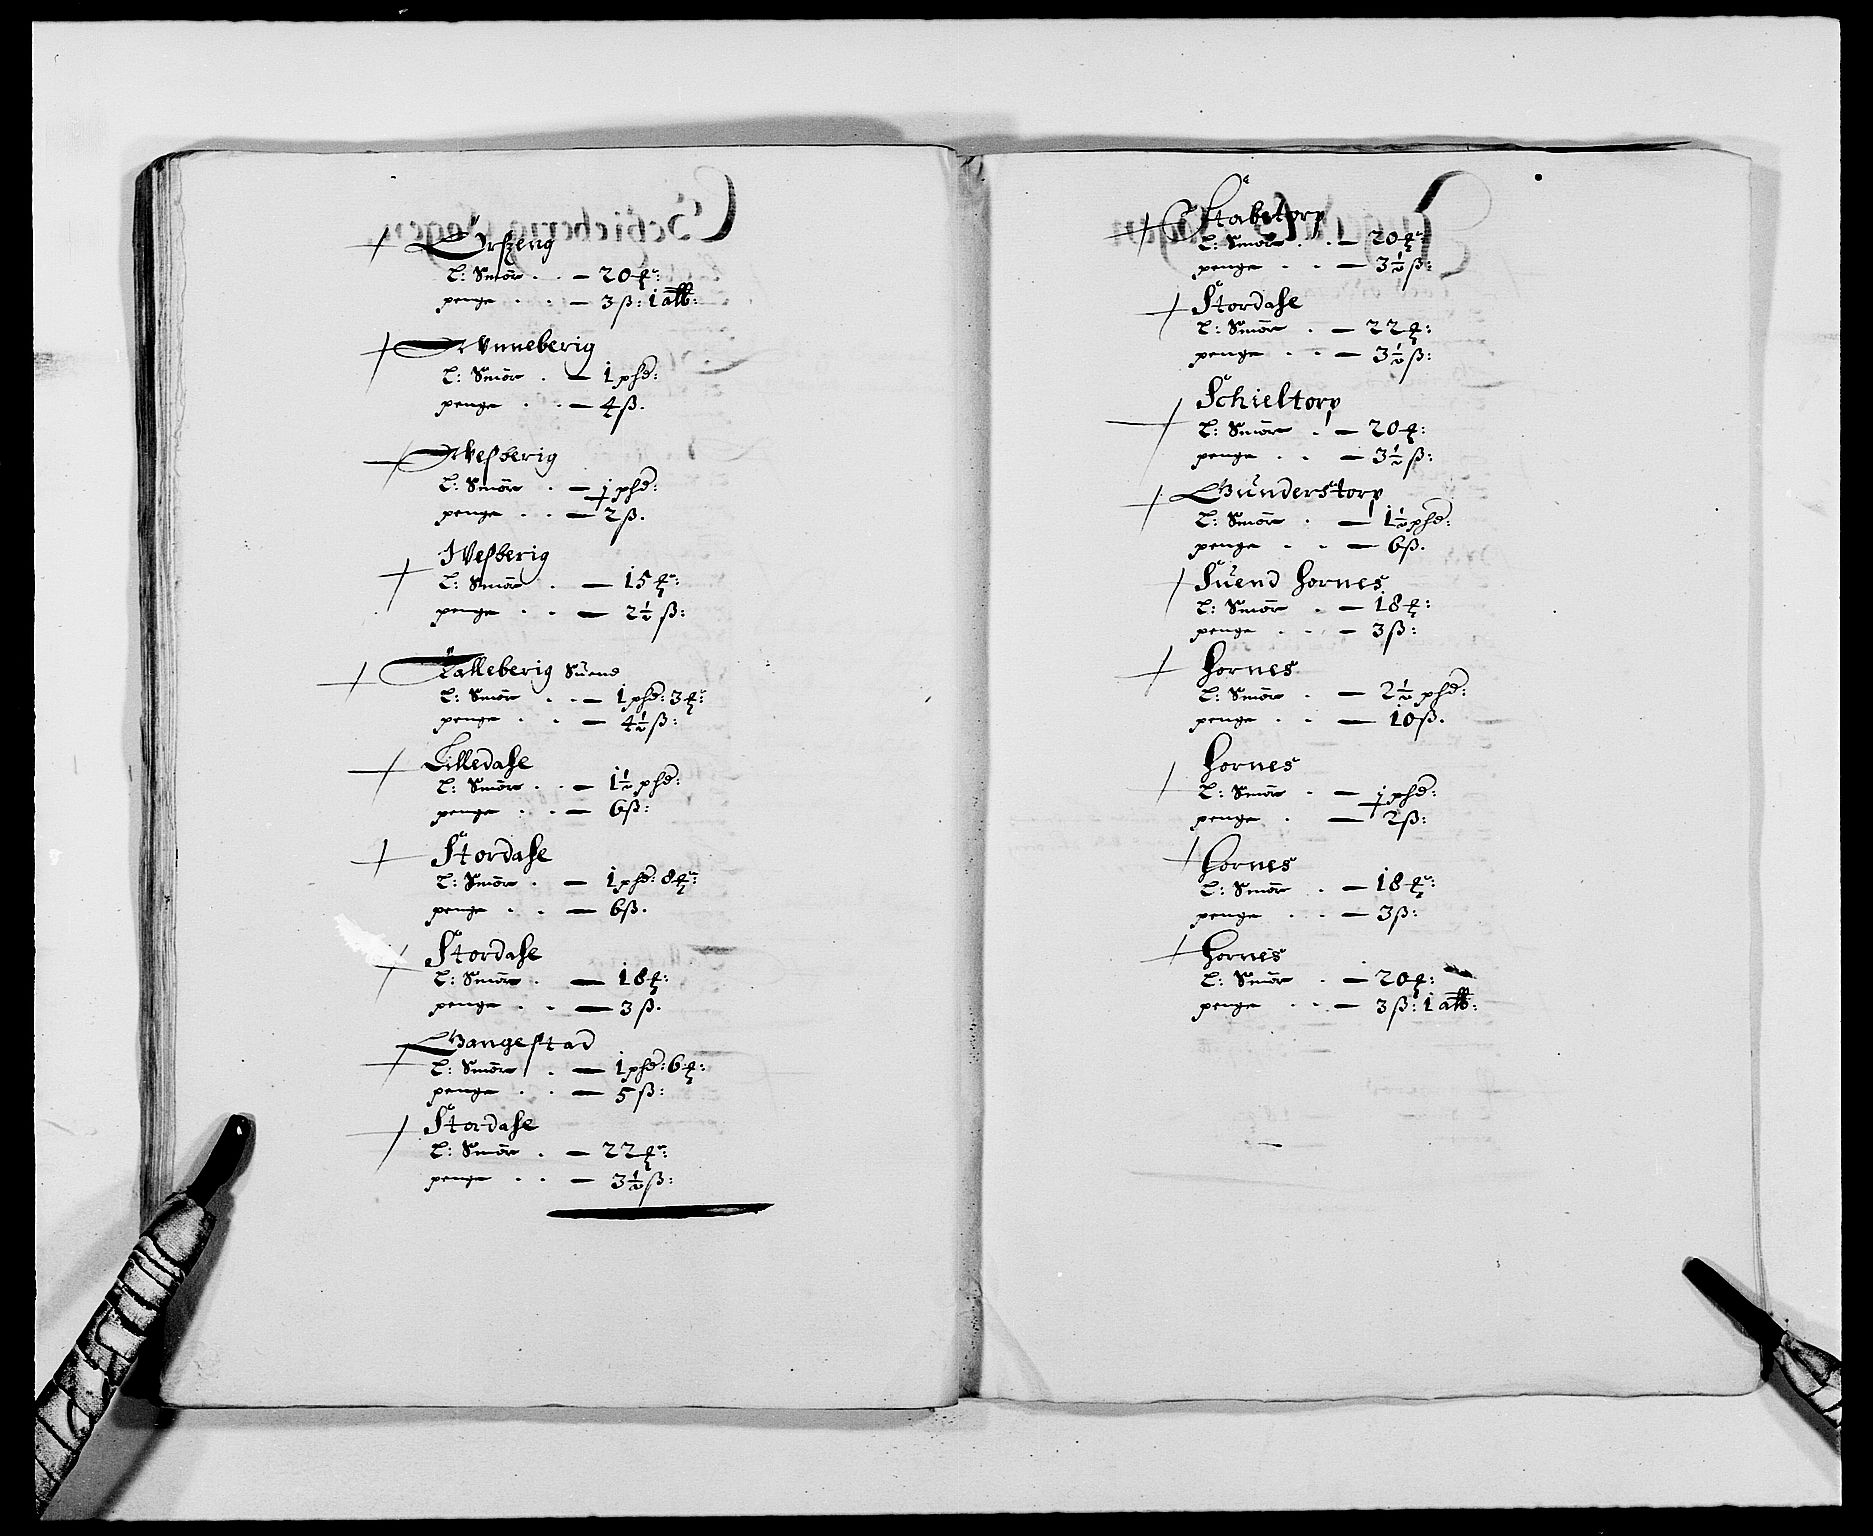 Orszeng
L: Smör . . — 20 ₰:
penge . . — 3 ß: 1 alb:
Wnneberig
L: Smör . — 1 phd:
penge . . — 4 ß.
Wesberig
L: Smör . — ½ phd:
penge . . — 2 ß.
Wesberig
L: Smör . — 15 ₰:
penge . . — 2½ ß:
Kalleberig Suend
L: Smör . . — 1 phd: 3 ₰:
penge . . — 4½ ß:
Lilledahl
L: Smör . . — 1½ phd:
penge . . — 6 ß:
Stordahl
L: Smör . — 1 phd: 8 ₰:
penge . . — 6 ß.
Stordahl
L: Smör . — 18 ₰:
penge . . — 3 ß.
Gangestad
L: Smör . — 1 phd: 6 ₰:
penge . . — 5 ß:
Stordahl
L: Smör . — 22 ₰:
penge . . — 3½ ß:
Stabetorp
L: Smör . . — 20 ₰:
penge . . — 3½ ß:
Stordahl
L: Smör . — 22 ₰:
penge . . — 3½ ß:
Schieltorp
L: Smör . — 20 ₰:
penge . . — 3½ ß:
Gunderstorp
L: Smör . — 1½ phd:
penge . . — 6 ß.
Suend Hornes
L: Smör . — 18 ₰:
penge . . — 3 ß:
Hornes
L: Smör . — 2½ phd:
penge . . — 10 ß.
Hornes
L: Smör . — ½ phd:
penge . — 2 ß:
Hornes
L: Smör . — 18 ₰:
penge . . — 3 ß:
Hornes
L: Smör . — 20 ₰:
penge . . — 3 ß: 1 alb: